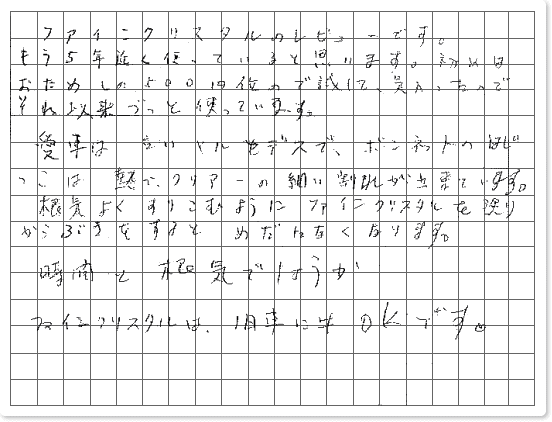 ファインクリスタルのレビューです。
もう5年近く使っていると思います。初めは
おためしの500円位ので試して、気入ったので
それ以来ずっと使っています。
愛車は古いメルセデスで、ボンネットのはじ
っこは熱で、クリアーの細い割れが出来ています。
根気よくすりこむようにファインクリスタルを塗り
からぶきをすると めだたなくなります。
時間と根気でしょうか
ファインクリスタルは、旧車にも OKです。